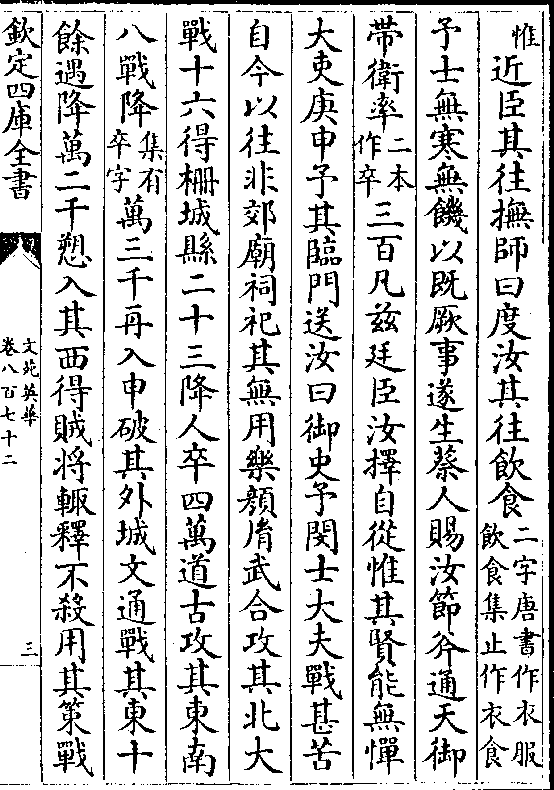 惟近臣其往撫師曰度汝其往飲食二字唐書作衣服飲食集止作衣食
予士無寒無饑以既厥事遂生蔡人賜汝節斧通天御
帶衛率二本作卒三百凡兹廷臣汝擇自從惟其賢能無憚
大吏庚申予其臨門送汝曰御史予閔士大夫戰甚苦
自今以往非郊廟祠祀其無用樂顔胤武合攻其北大
戰十六得柵城縣二十三降人卒四萬道古攻其東南
八戰降集有卒字萬三千再入申破其外城文通戰其東十
餘遇降萬二千愬入其西得賊將輙釋不殺用其策戰
欽定四庫全書
文苑英華
卷八百七十二
三